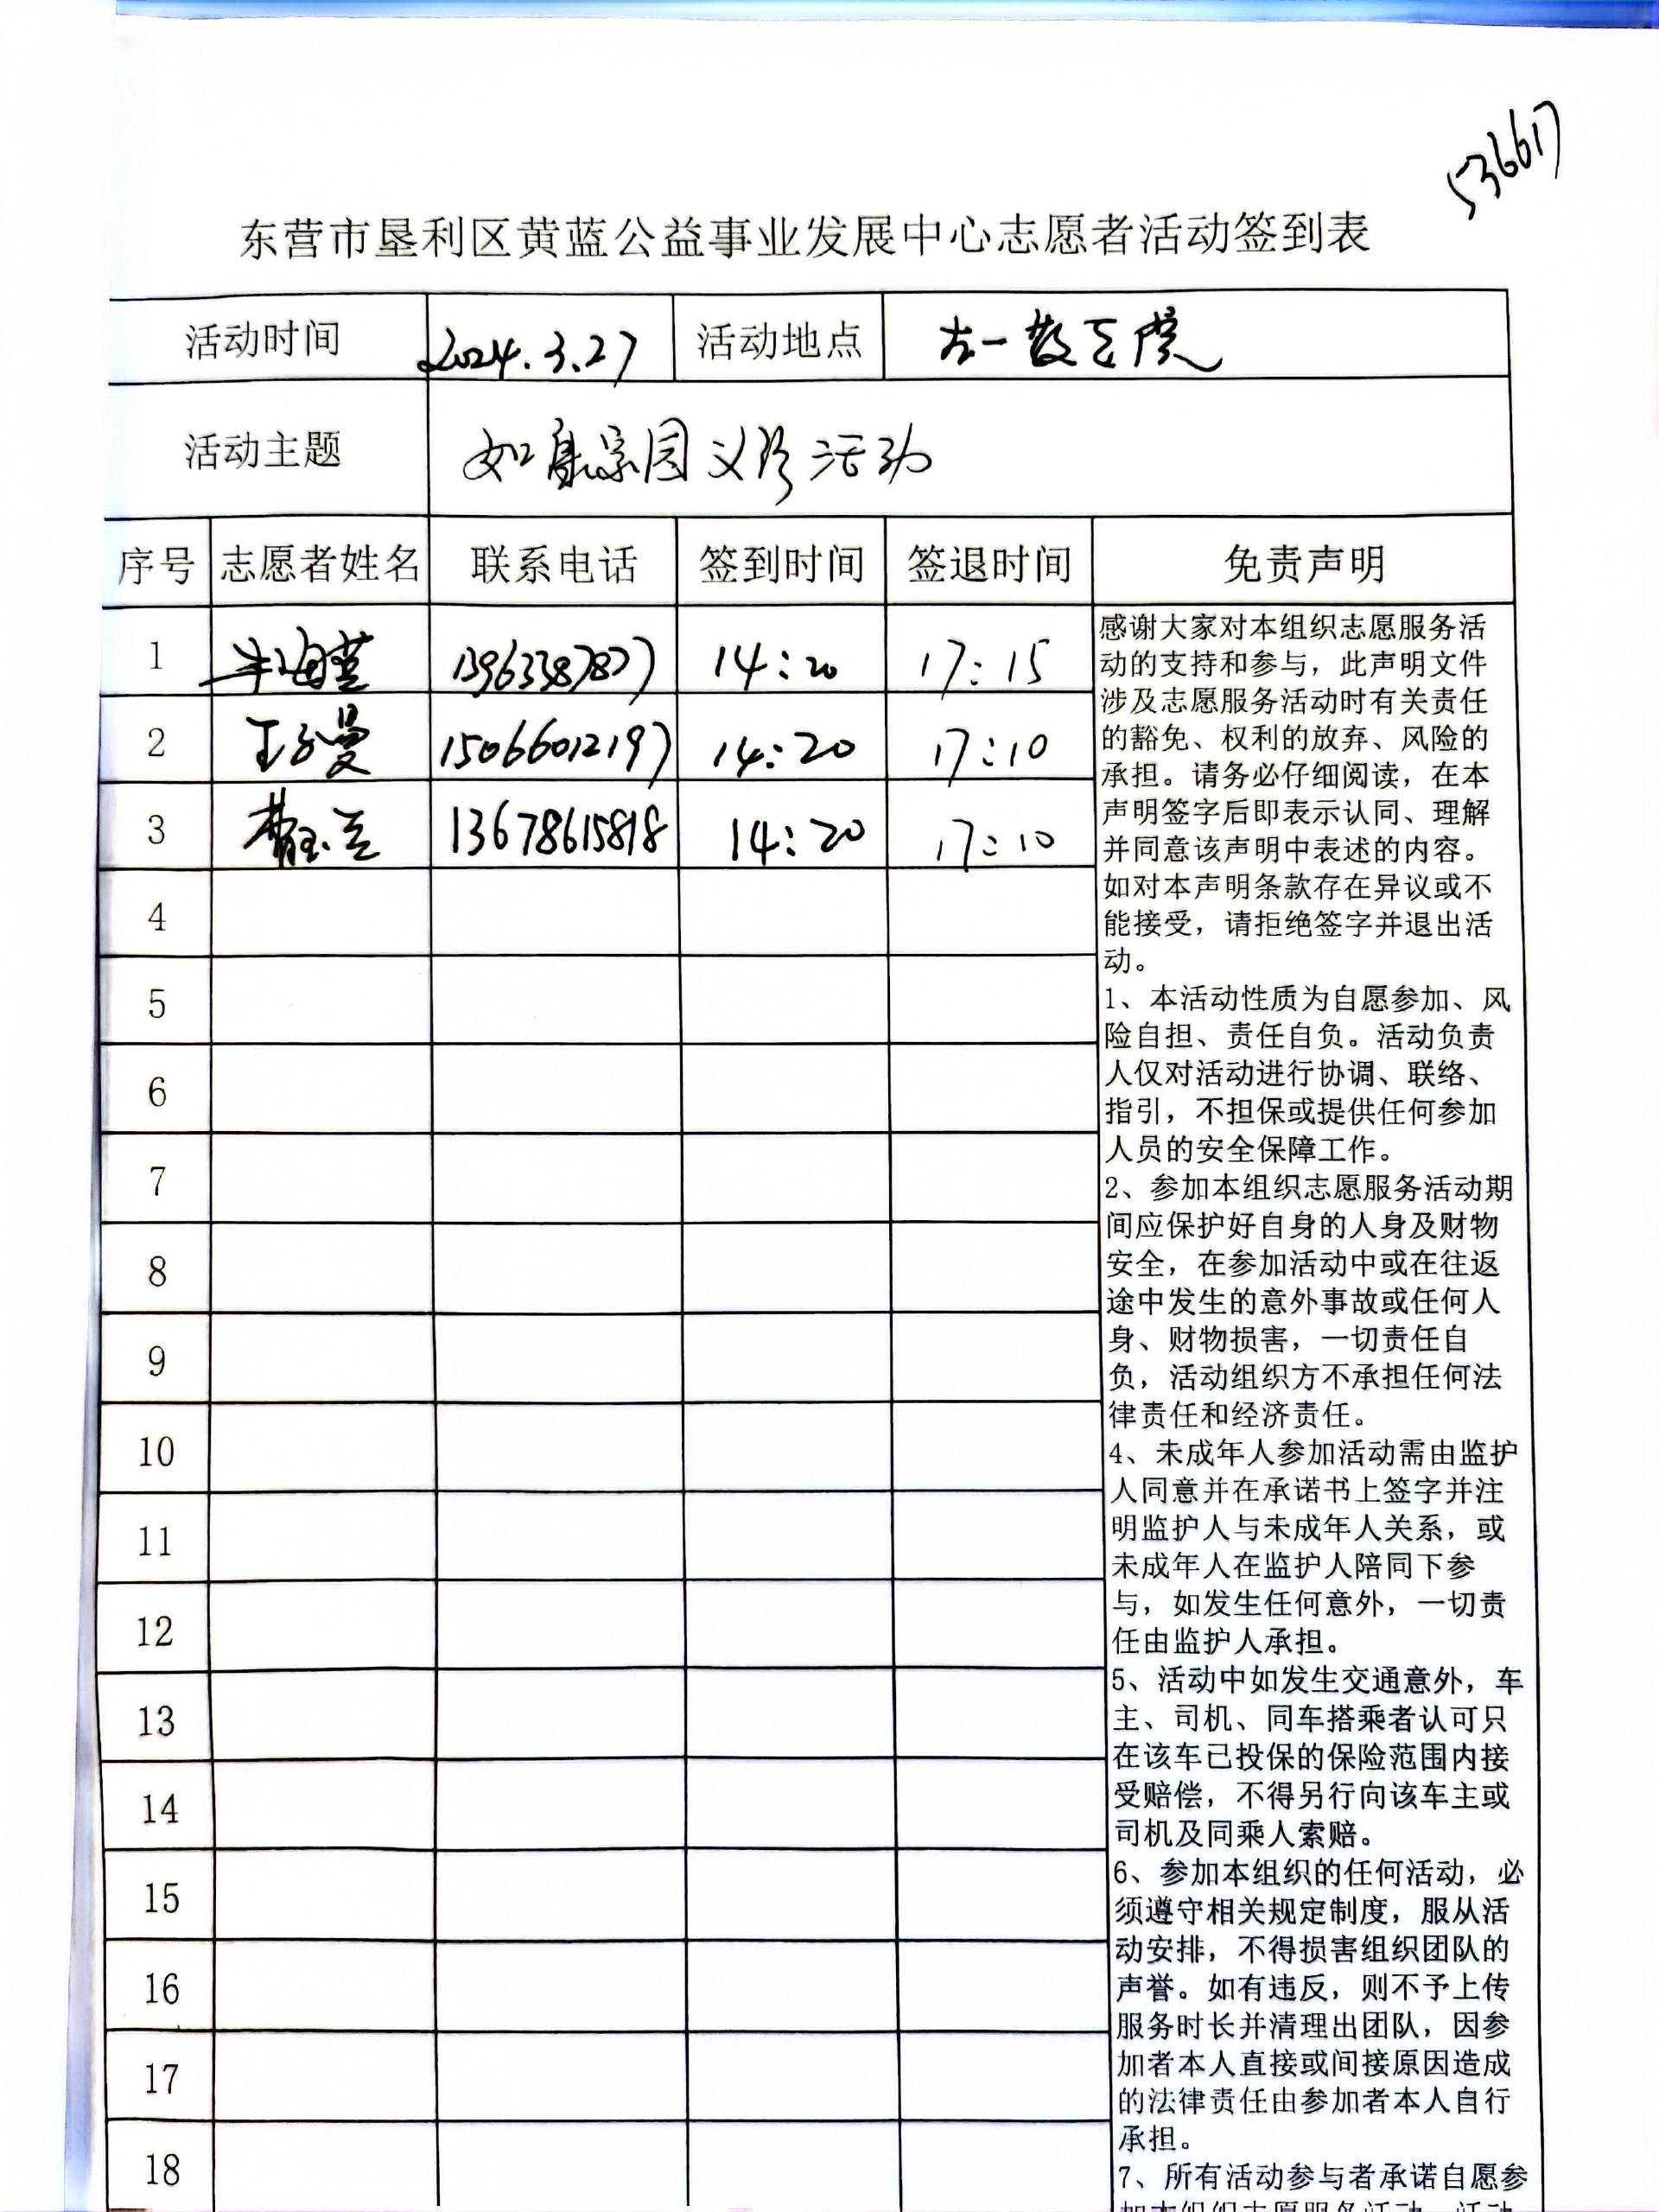 536617
东营市垦利区黄蓝公益事业发展中心志愿者活动签到表
活动时间 2024.3.27 活动地点 一敬老院
活动主题 如 家园义诊活动
序号 志愿者姓名 联系电话 签到时间 签退时间 免责声明
1 牛海 14:20 17:15
2 王 曼 15066012197 14:20 17:10
3 13678615818 14:20 17:10
4
5
6
7
8
9
10
11
12
13
14
15
16
17
18
感谢大家对本组织志愿服务活
动的支持和参与，此声明文件
涉及志愿服务活动时有关责任
的豁免、权利的放弃、风险的
承担。请务必仔细阅读，在本
声明签字后即表示认同、理解
并同意该声明中表述的内容。
如对本声明条款存在异议或不
能接受，请拒绝签字并退出活
动。
1、本活动性质为自愿参加、风
险自担、责任自负。活动负责
人仅对活动进行协调、联络、
指引，不担保或提供任何参加
人员的安全保障工作。
2、参加本组织志愿服务活动期
间应保护好自身的人身及财物
安全，在参加活动中或在往返
途中发生的意外事故或任何人
身、财物损害，一切责任自
负，活动组织方不承担任何法
律责任和经济责任。
4、未成年人参加活动需由监护
人同意并在承诺书上签字并注
明监护人与未成年人关系，或
未成年人在监护人陪同下参
与，如发生任何意外，一切责
任由监护人承担。
5、活动中如发生交通意外，车
主、司机、同车搭乘者认可只
在该车已投保的保险范围内接
受赔偿，不得另行向该车主或
司机及同乘人索赔。
6、参加本组织的任何活动，必
须遵守相关规定制度，服从活
动安排，不得损害组织团队的
声誉。如有违反，则不予上传
服务时长并清理出团队，因参
加者本人直接或间接原因造成
的法律责任由参加者本人自行
承担。
7、所有活动参与者承诺自愿参